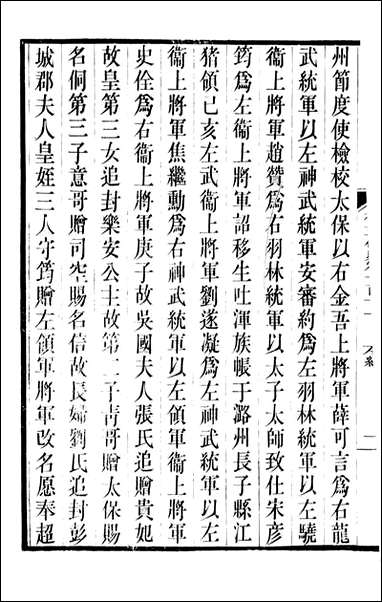 州節度使檢校太保以右金吾上將軍薛可言爲右龍
武統軍以左神武統軍安審約爲左羽林統軍以左驍
衞上將軍趙贊爲右羽林統軍以太子太師致仕宋彥
筠爲左衞上將軍詔移生吐渾族帳于潞州長子縣江
猪嶺己亥左武衞上將軍劉遂凝爲左神武統軍以左
衞上將軍焦繼勳爲右神武統軍以左領軍衞上將軍
史佺爲右衞上將軍庚子故吳國夫人張氏追贈貴妃
故皇第三女追封樂安公主故第二子靑哥贈太保賜
名侗第三子意哥贈司空賜名信故長婦劉氏追封彭
城郡夫人皇姪三人守筠贈左領軍將軍改名愿奉超